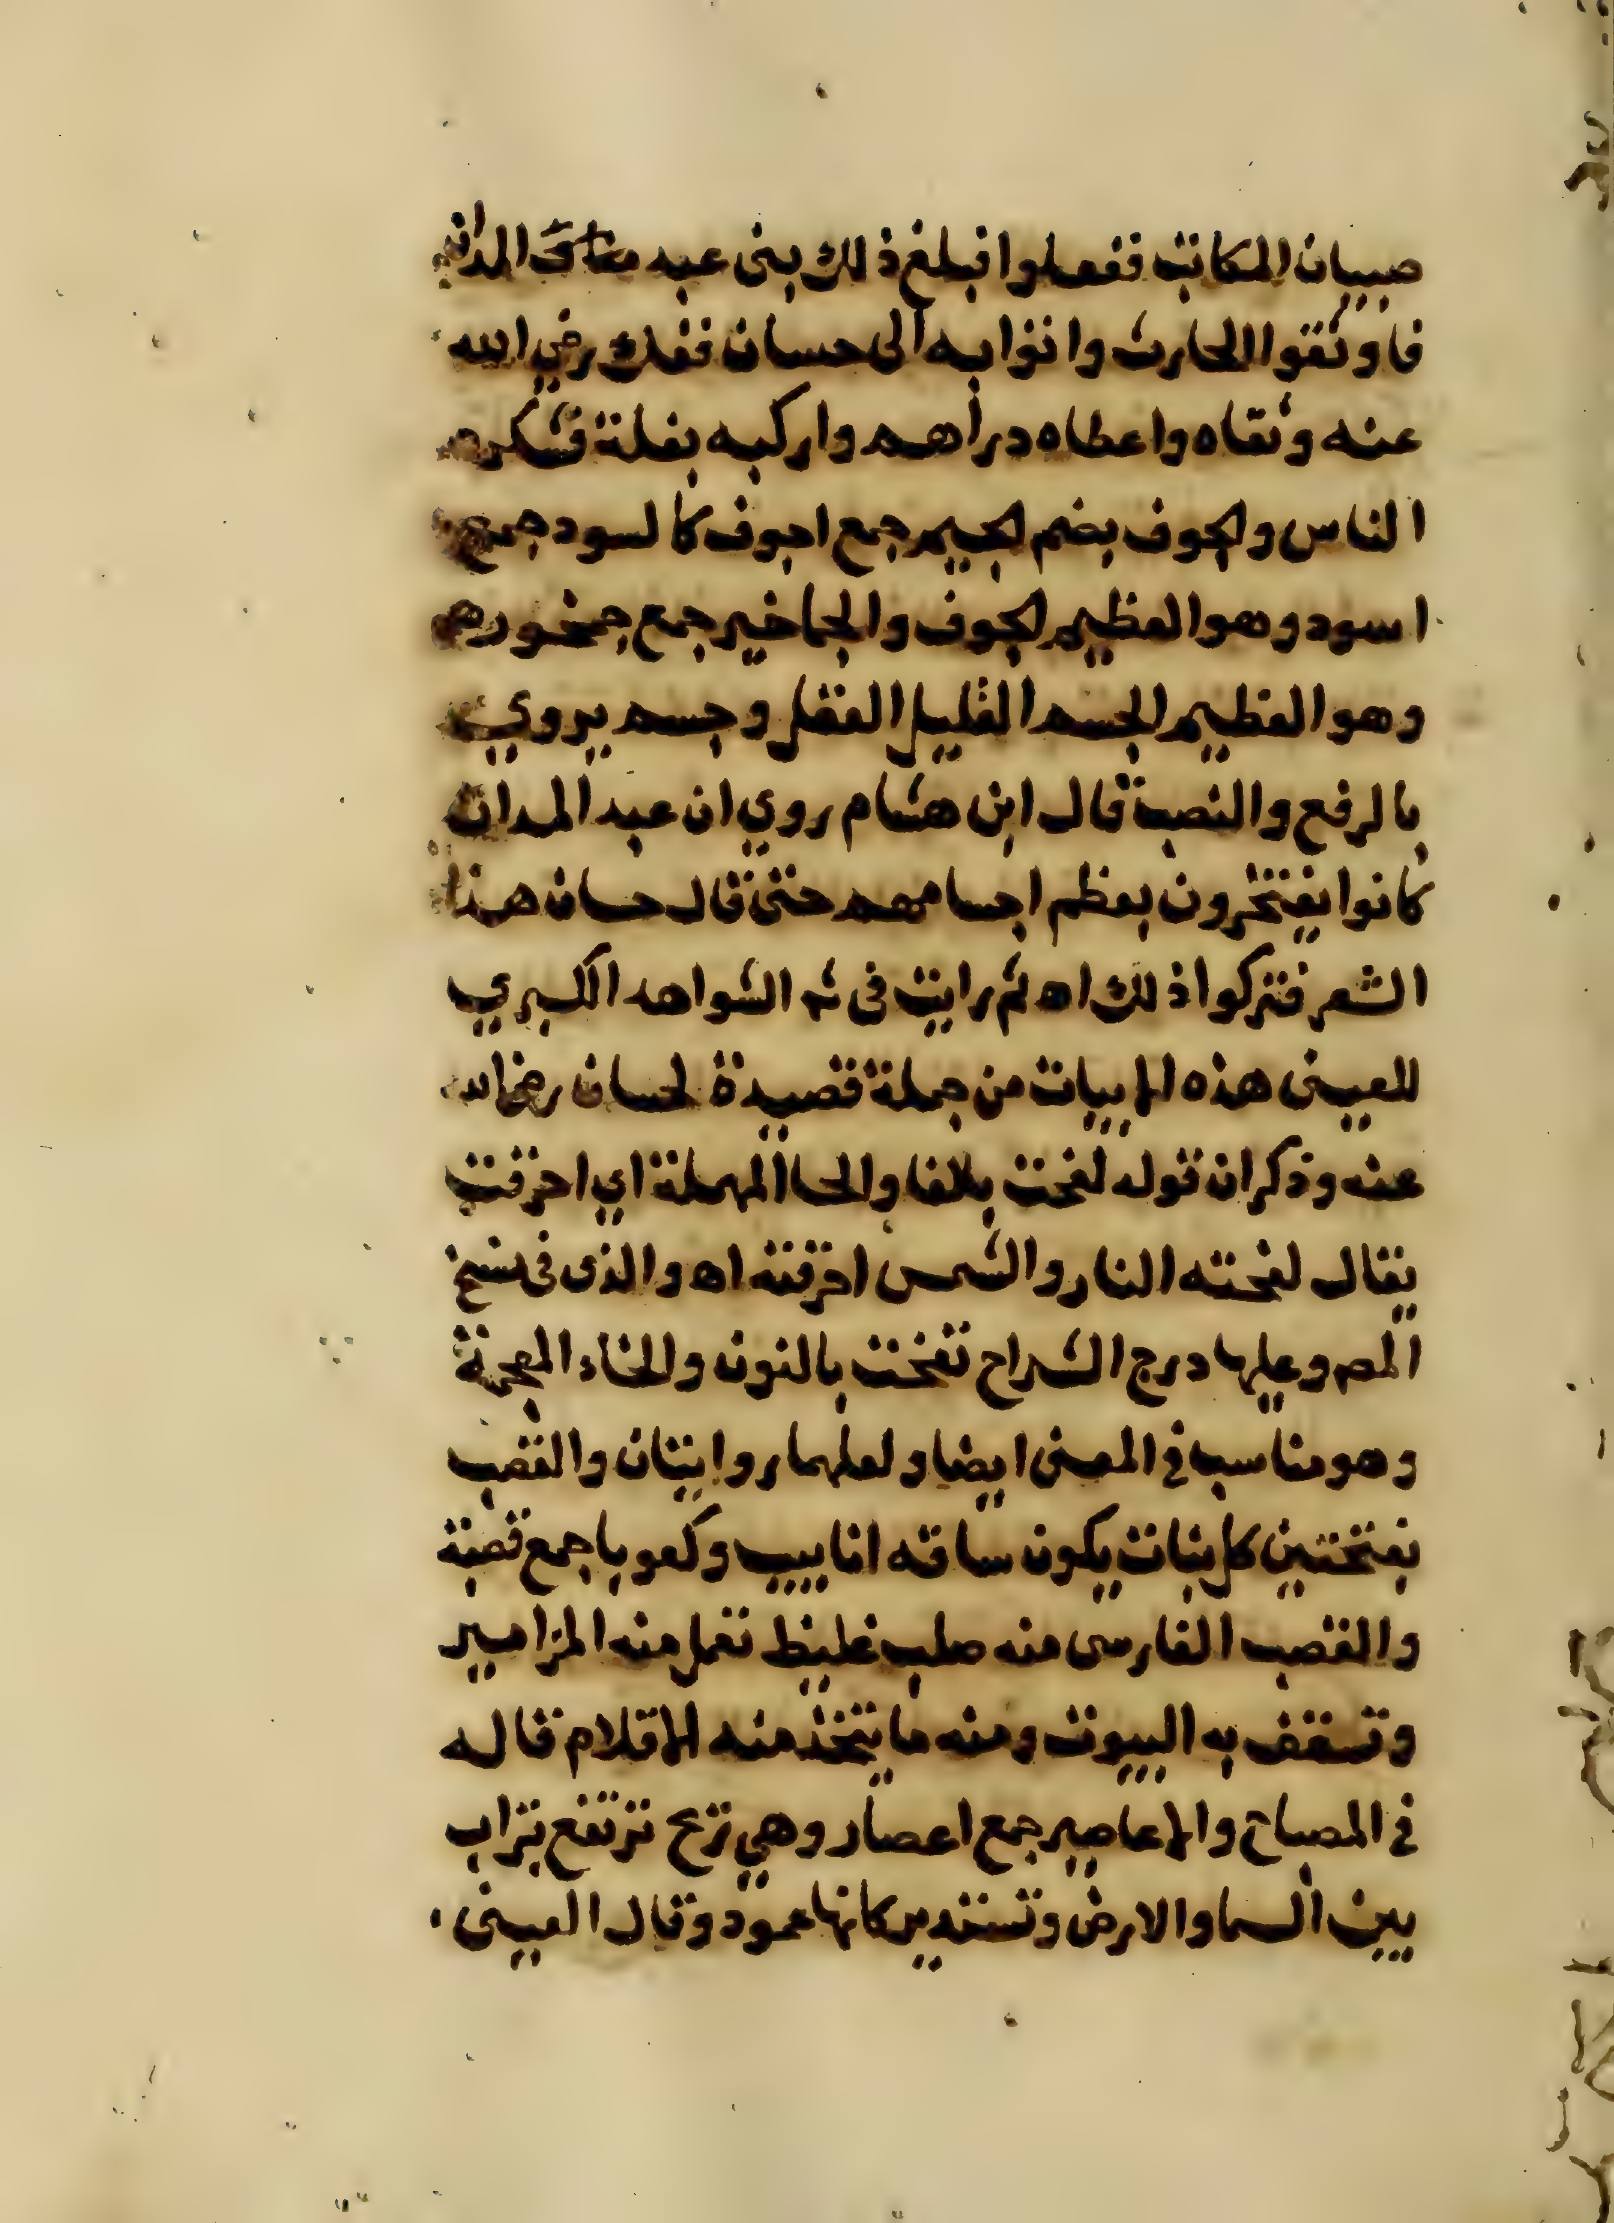 صبيان المكاتب ففعلوا فبلغ ذلك بنى عبد المدان
فاوثقوا الحارث واتوا به الى حسان ففك رضي الله
عنه وثقاه واعطاه دراهم واركبه بغلة فشكره
الناس والجوف بضم الجيم جمع اجوف كالسود جمع
اسود وهو العظيم الجوف والجماخير جمع جمخور
وهو العظيم الجسم القليل العقل وجسم يروي
بالرفع والنصب قال ابن هشام روي ان عبد المدان
كانوا يفتخرون بعظم اجسامهم حتى قال حسان هذا
الشعر فتركوا ذلك اه ثم رايت فى شر الشواهد الكبري
للعينى هذه الابيات من جملة قصيدة لحسان رضي الله
عنه وذكر ان قوله لفحت بالفا والحا المهملة اي احرقت
يقال لفحته النار والشمس احرقته اه والذى فى نسخ
المص وعليها درج الشراح نفخت بالنون والخاء المعجمة
وهو مناسب في المعنى ايضا ولعلهما روايتان والقصب
بفتحتين كل نبات يكون ساقه انابيب وكعوبا جمع قصبة
والقصب الفارسى منه صلب غليظ تعمل منه المزامير
وتسقف به البيوت ومنه ما يتخذ منه الاقلام قاله
في المصباح والاعاصير جمع اعصار وهي تريح ترتفع بتراب
بين السما والارض وتستدير كانها عمود وقال العينى